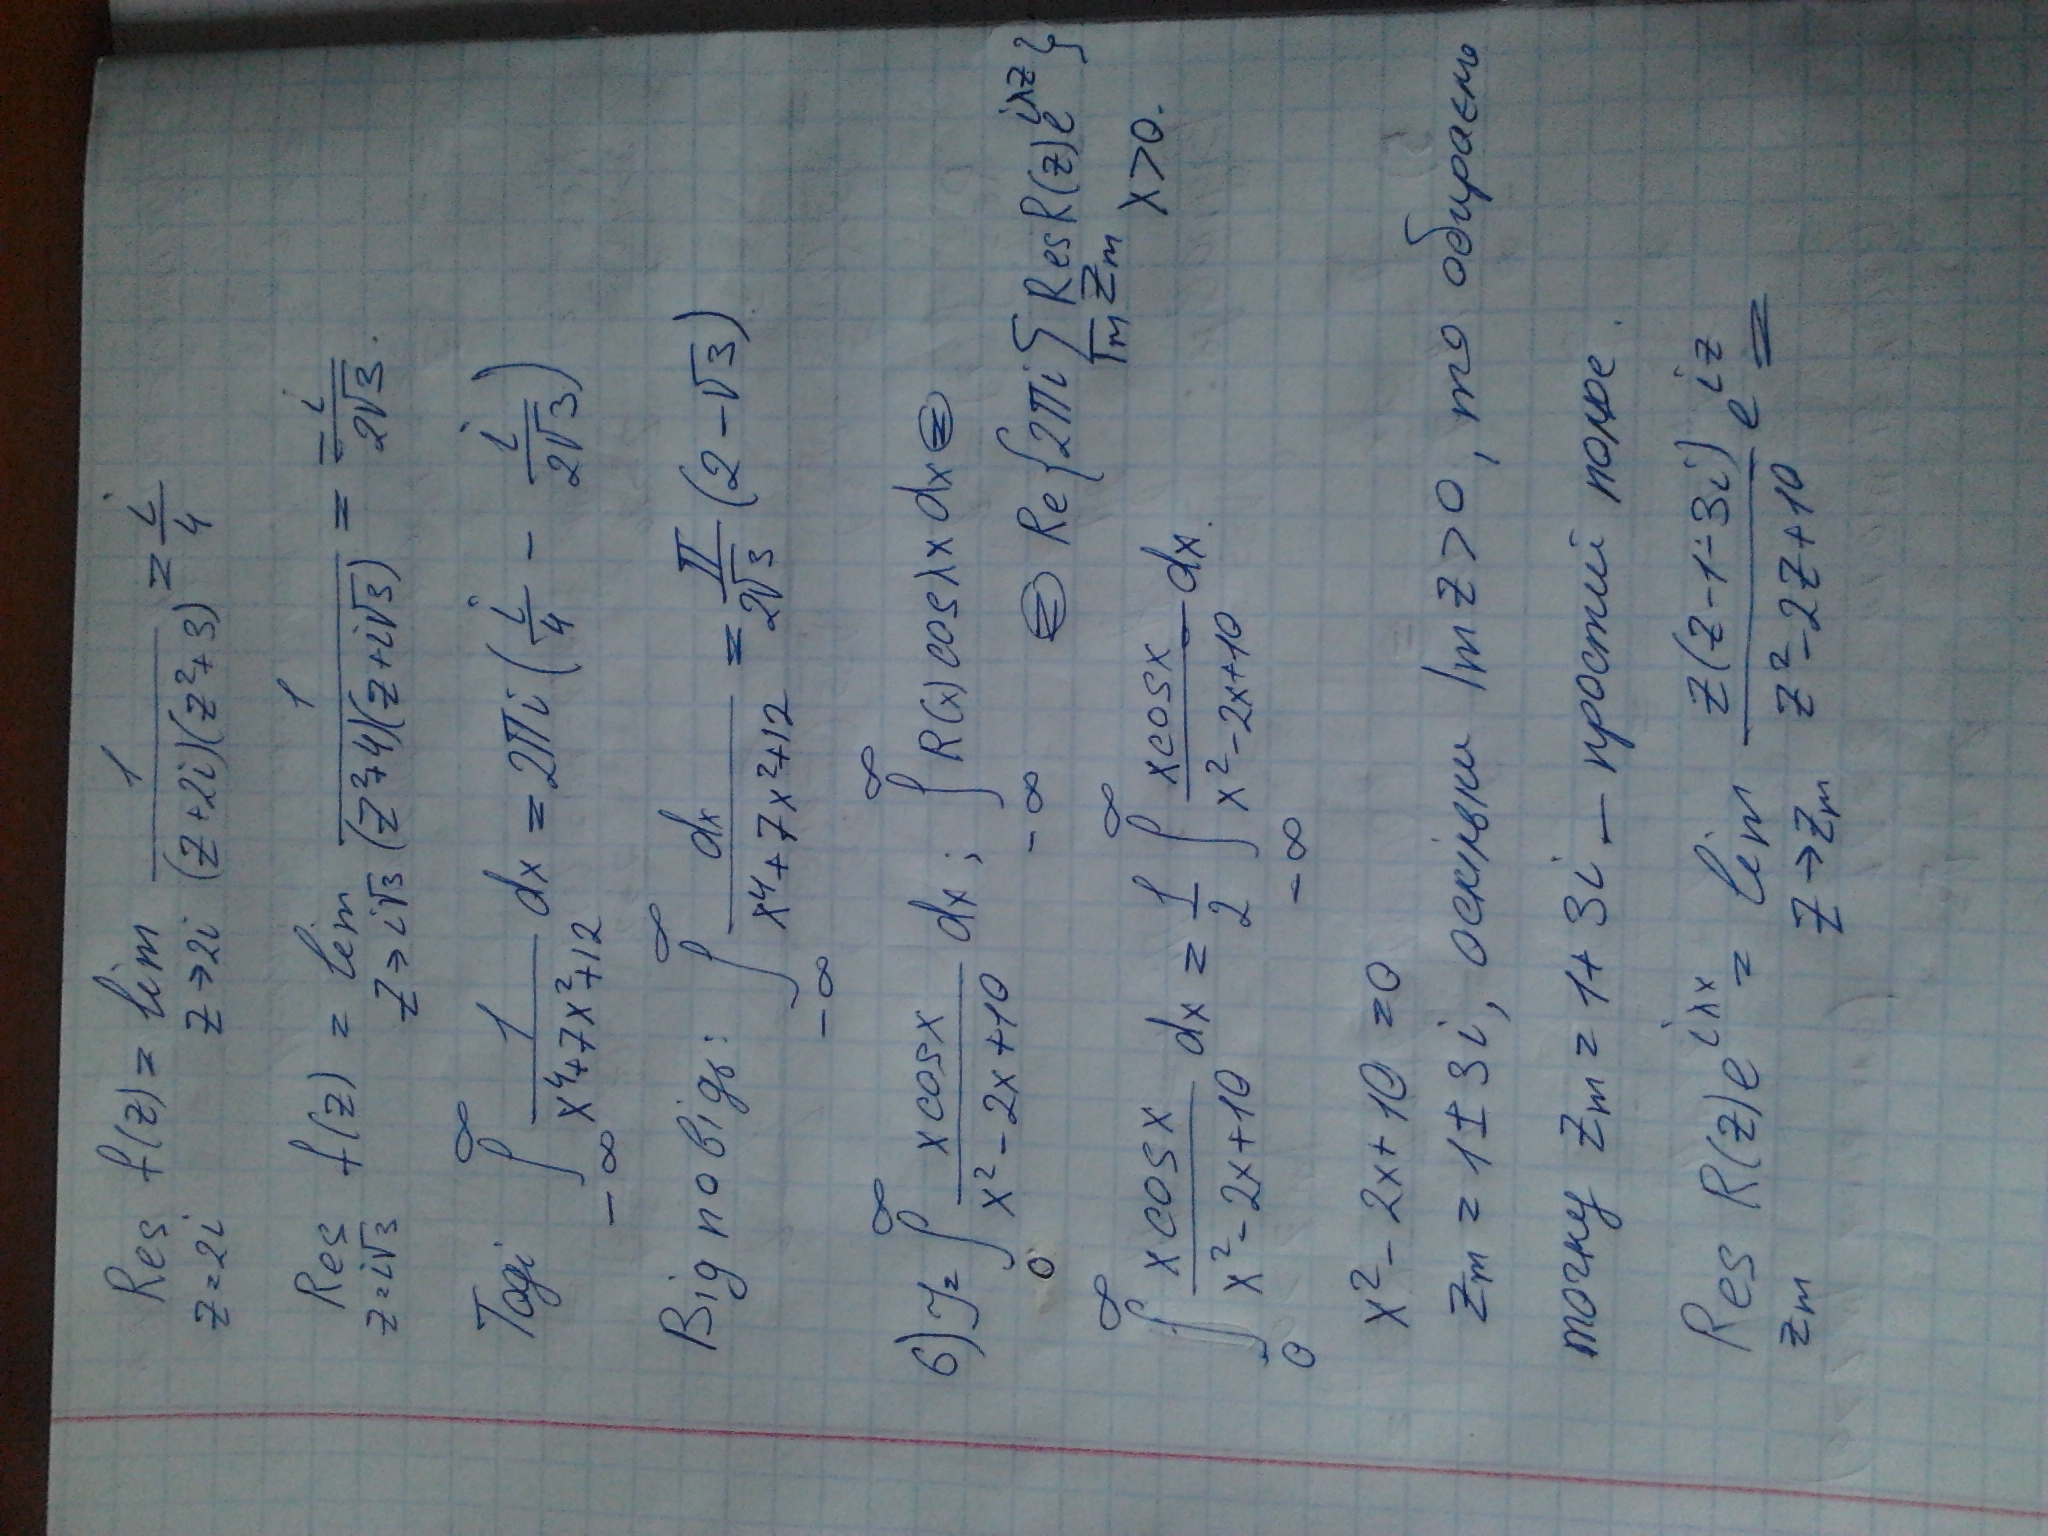 Res f(z) = lim 1/((z+2i)(z²+3)) = i/4
z=2i z→2i
Res f(z) = lim 1/((z²+4)(z+i√3)) = -i/(2√3).
z=i√3 z→i√3
Тоді ∫_{-∞}^{∞} 1/(x⁴+7x²+12) dx = 2πi (i/4 - i/(2√3))
Відповідь: ∫_{-∞}^{∞} dx/(x⁴+7x²+12) = π/(2√3) (2-√3)
6) J= ∫_0^∞ (x cosx)/(x²-2x+10) dx; ∫_{-∞}^{∞} R(x) cosλx dx ⊜
⊜ Re{2πi ∑ Res R(z)e^{iλz}}
Im zm
λ>0.
∫_0^∞ (x cosx)/(x²-2x+10) dx = 1/2 ∫_{-∞}^{∞} (x cosx)/(x²-2x+10) dx.
x²-2x+10=0
zm = 1±3i, оскільки Im z>0, то обираємо
точку zm = 1+3i - простий полюс.
Res R(z)e^{iλx} = lim (z(z-1-3i))/(z²-2z+10) e^{iz} =
zm z→zm